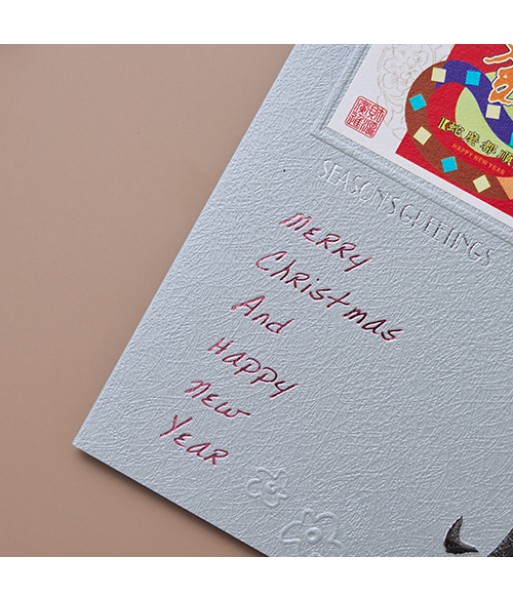 HAPPY NEW YEAR
SEASON'S GREETINGS
Merry
Christmas
And
Happy
New
Year